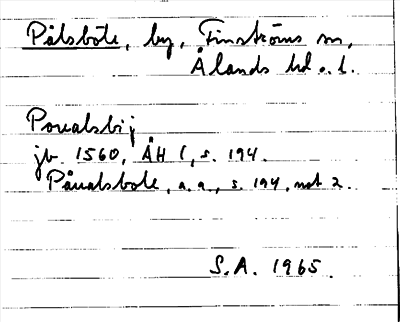 Pålsböle, by, Finströms sn,
Ålands hd o. l.
Poualsbij
jb. 1560, ÅH 1, s. 194.
Påualsbole, a.a., s. 194, not 2.
S.A. 1965.